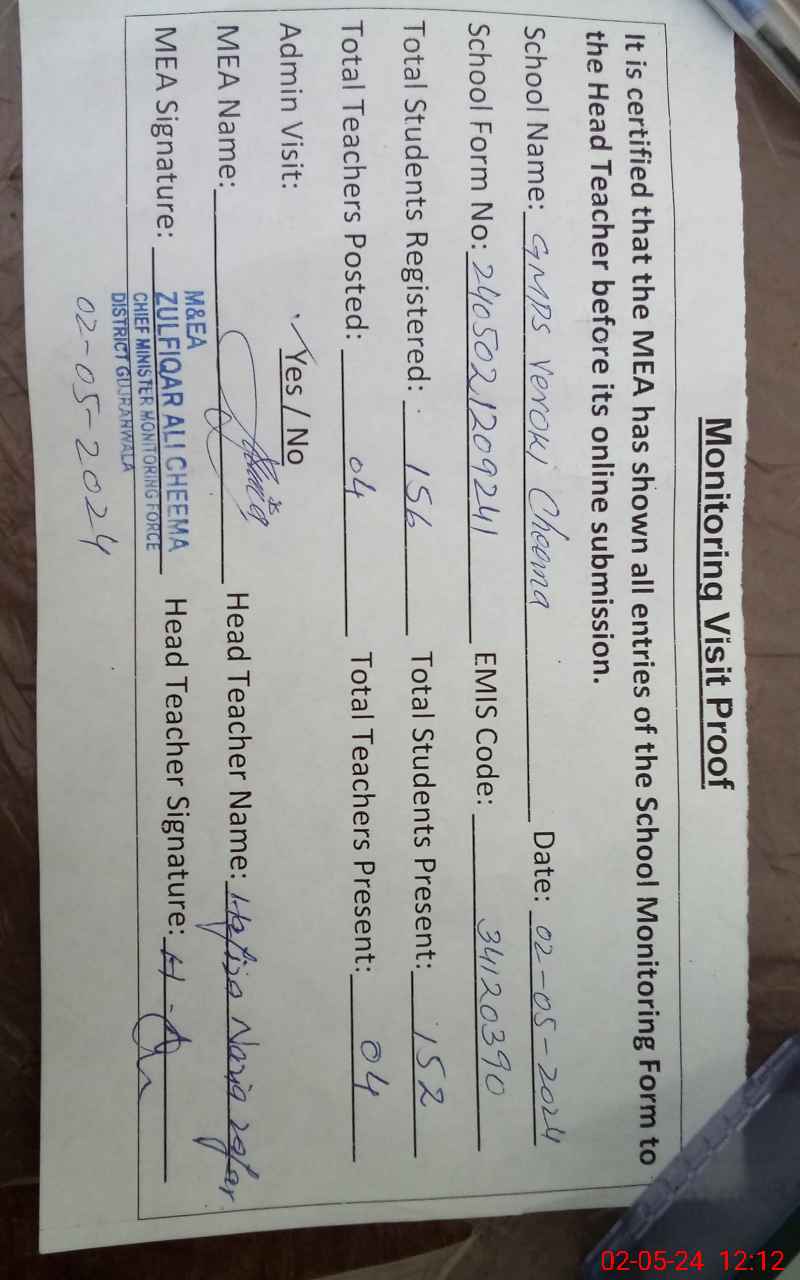 Monitoring Visit Proof
It is certified that the MEA has shown all entries of the School Monitoring Form to
the Head Teacher before its online submission.
School Name: GMPS Veroki Cheema Date: 02-05-2024
School Form No: 2405021209241 EMIS Code: 34120390
Total Students Registered: 156 Total Students Present: 152
Total Teachers Posted: 04 Total Teachers Present: 04
Admin Visit: ✓Yes / No
MEA Name: Head Teacher Name: Hafiza Nazia zafar
MEA Signature: Head Teacher Signature:
M&EA
ZULFIQAR ALI CHEEMA
CHIEF MINISTER MONITORING FORCE
DISTRICT GUJRANWALA
02-05-2024
02-05-24 12:12